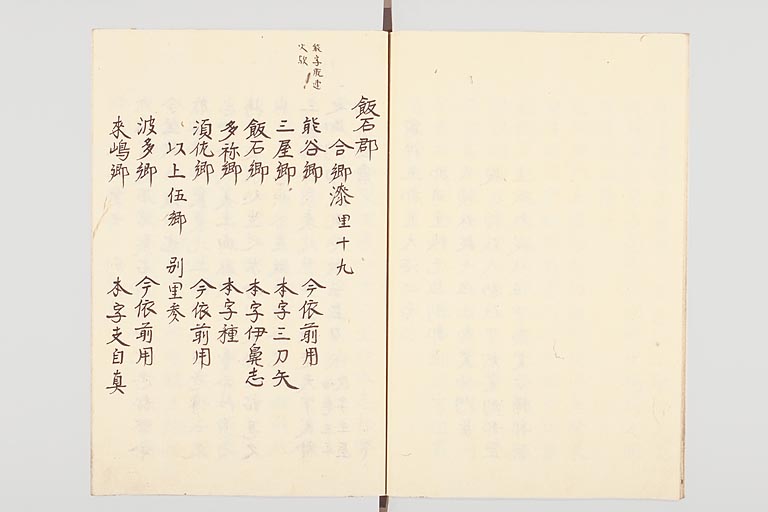 飯石郡
合郷漆里十九
能谷郷 今依前用
三屋郷 本字三刀矢
飯石郷 本字伊鼻志
多祢郷 本字種
須佐郷 今依前用
以上伍郷 別里参
波多郷 今依前用
来嶋郷 本字支自真